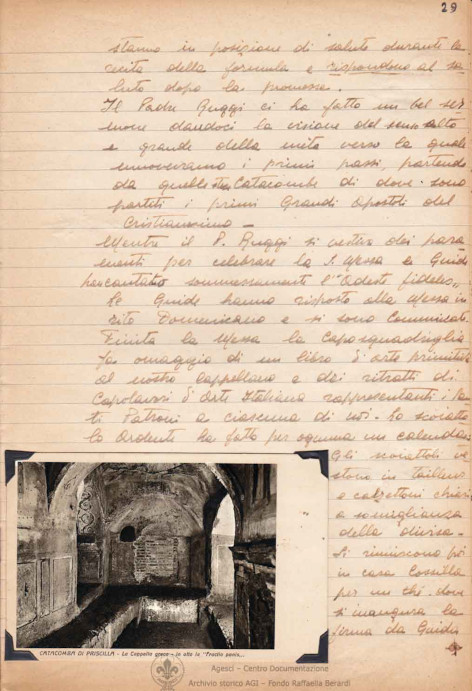 29
stanno in posizione di saluto durante la
cita della formula e rispondono al sa-
luto dopo la promessa.
Il Padre Ruggi ci ha fatto un bel ser
mone dandoci la visione del senso alto
e grande della meta verso la quale
muoveremo i primi passi, partendo
da quelle Catacombe di dove sono
partiti i primi Grandi Apostoli del
Cristianesimo -
Mentre il P. Ruggi si vestiva dei para
menti per celebrare la S. Messa le Guide
hanno cantato sommessamente l'Adeste fideles,,
le Guide hanno risposto alla Messa in
rito Domenicano e si sono Comunicate.
Finita la Messa la Caposquadriglia
fa omaggio di un libro d'arte primitiva
al nostro Cappellano e dei ritratti di
Capolavori d'Arte Italiana rappresentanti i San
ti Patroni a ciascuna di noi. Lo scoiattolo
ha fatto per ognuna un calendario
Gli scoiattoli ve
stono in tailleur
e calzettoni chiari
a somiglianza
della divisa -
Si riuniscono poi
in casa Cossilla
per un the dove
si inaugura la
firma da Guida
CATACOMBA DI PRISCILLA - La Cappella greca - in alto la "Fractio panis„
Agesci - Centro Documentazione
Archivio storico AGI - Fondo Raffaella Berardi